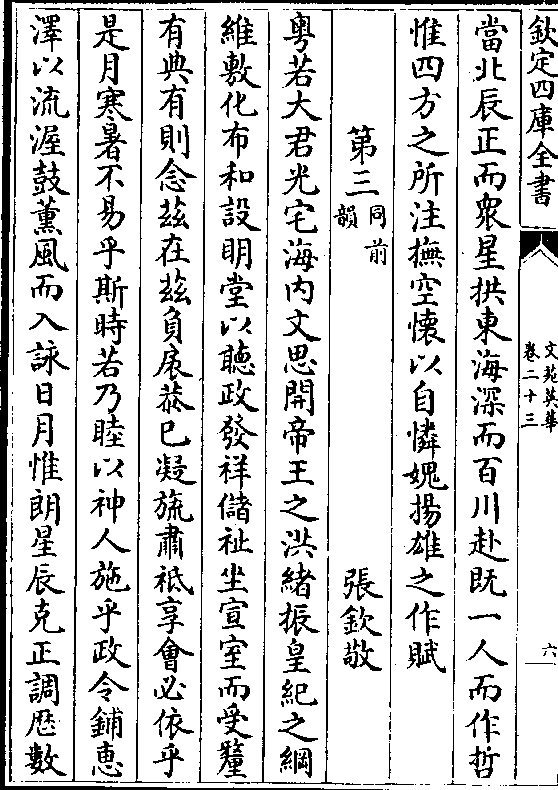 欽定四庫全書
文苑英華
卷二十三
六
當北辰正而衆星拱東海深而百川赴既一人而作哲
惟四方之所注撫空懷以自憐媿揚雄之作賦
第三同前韻
張欽敬
粤若大君光宅海内文思開帝王之洪緒振皇紀之綱
維敷化布和設明堂以聽政發祥儲祉坐宣室而受釐
有典有則念兹在兹負扆恭已凝旒肅祗享會必依乎
是月寒暑不易乎斯時若乃睦以神人施乎政令鋪恵
澤以流渥鼓薰風而入詠日月惟朗星辰克正調歴數